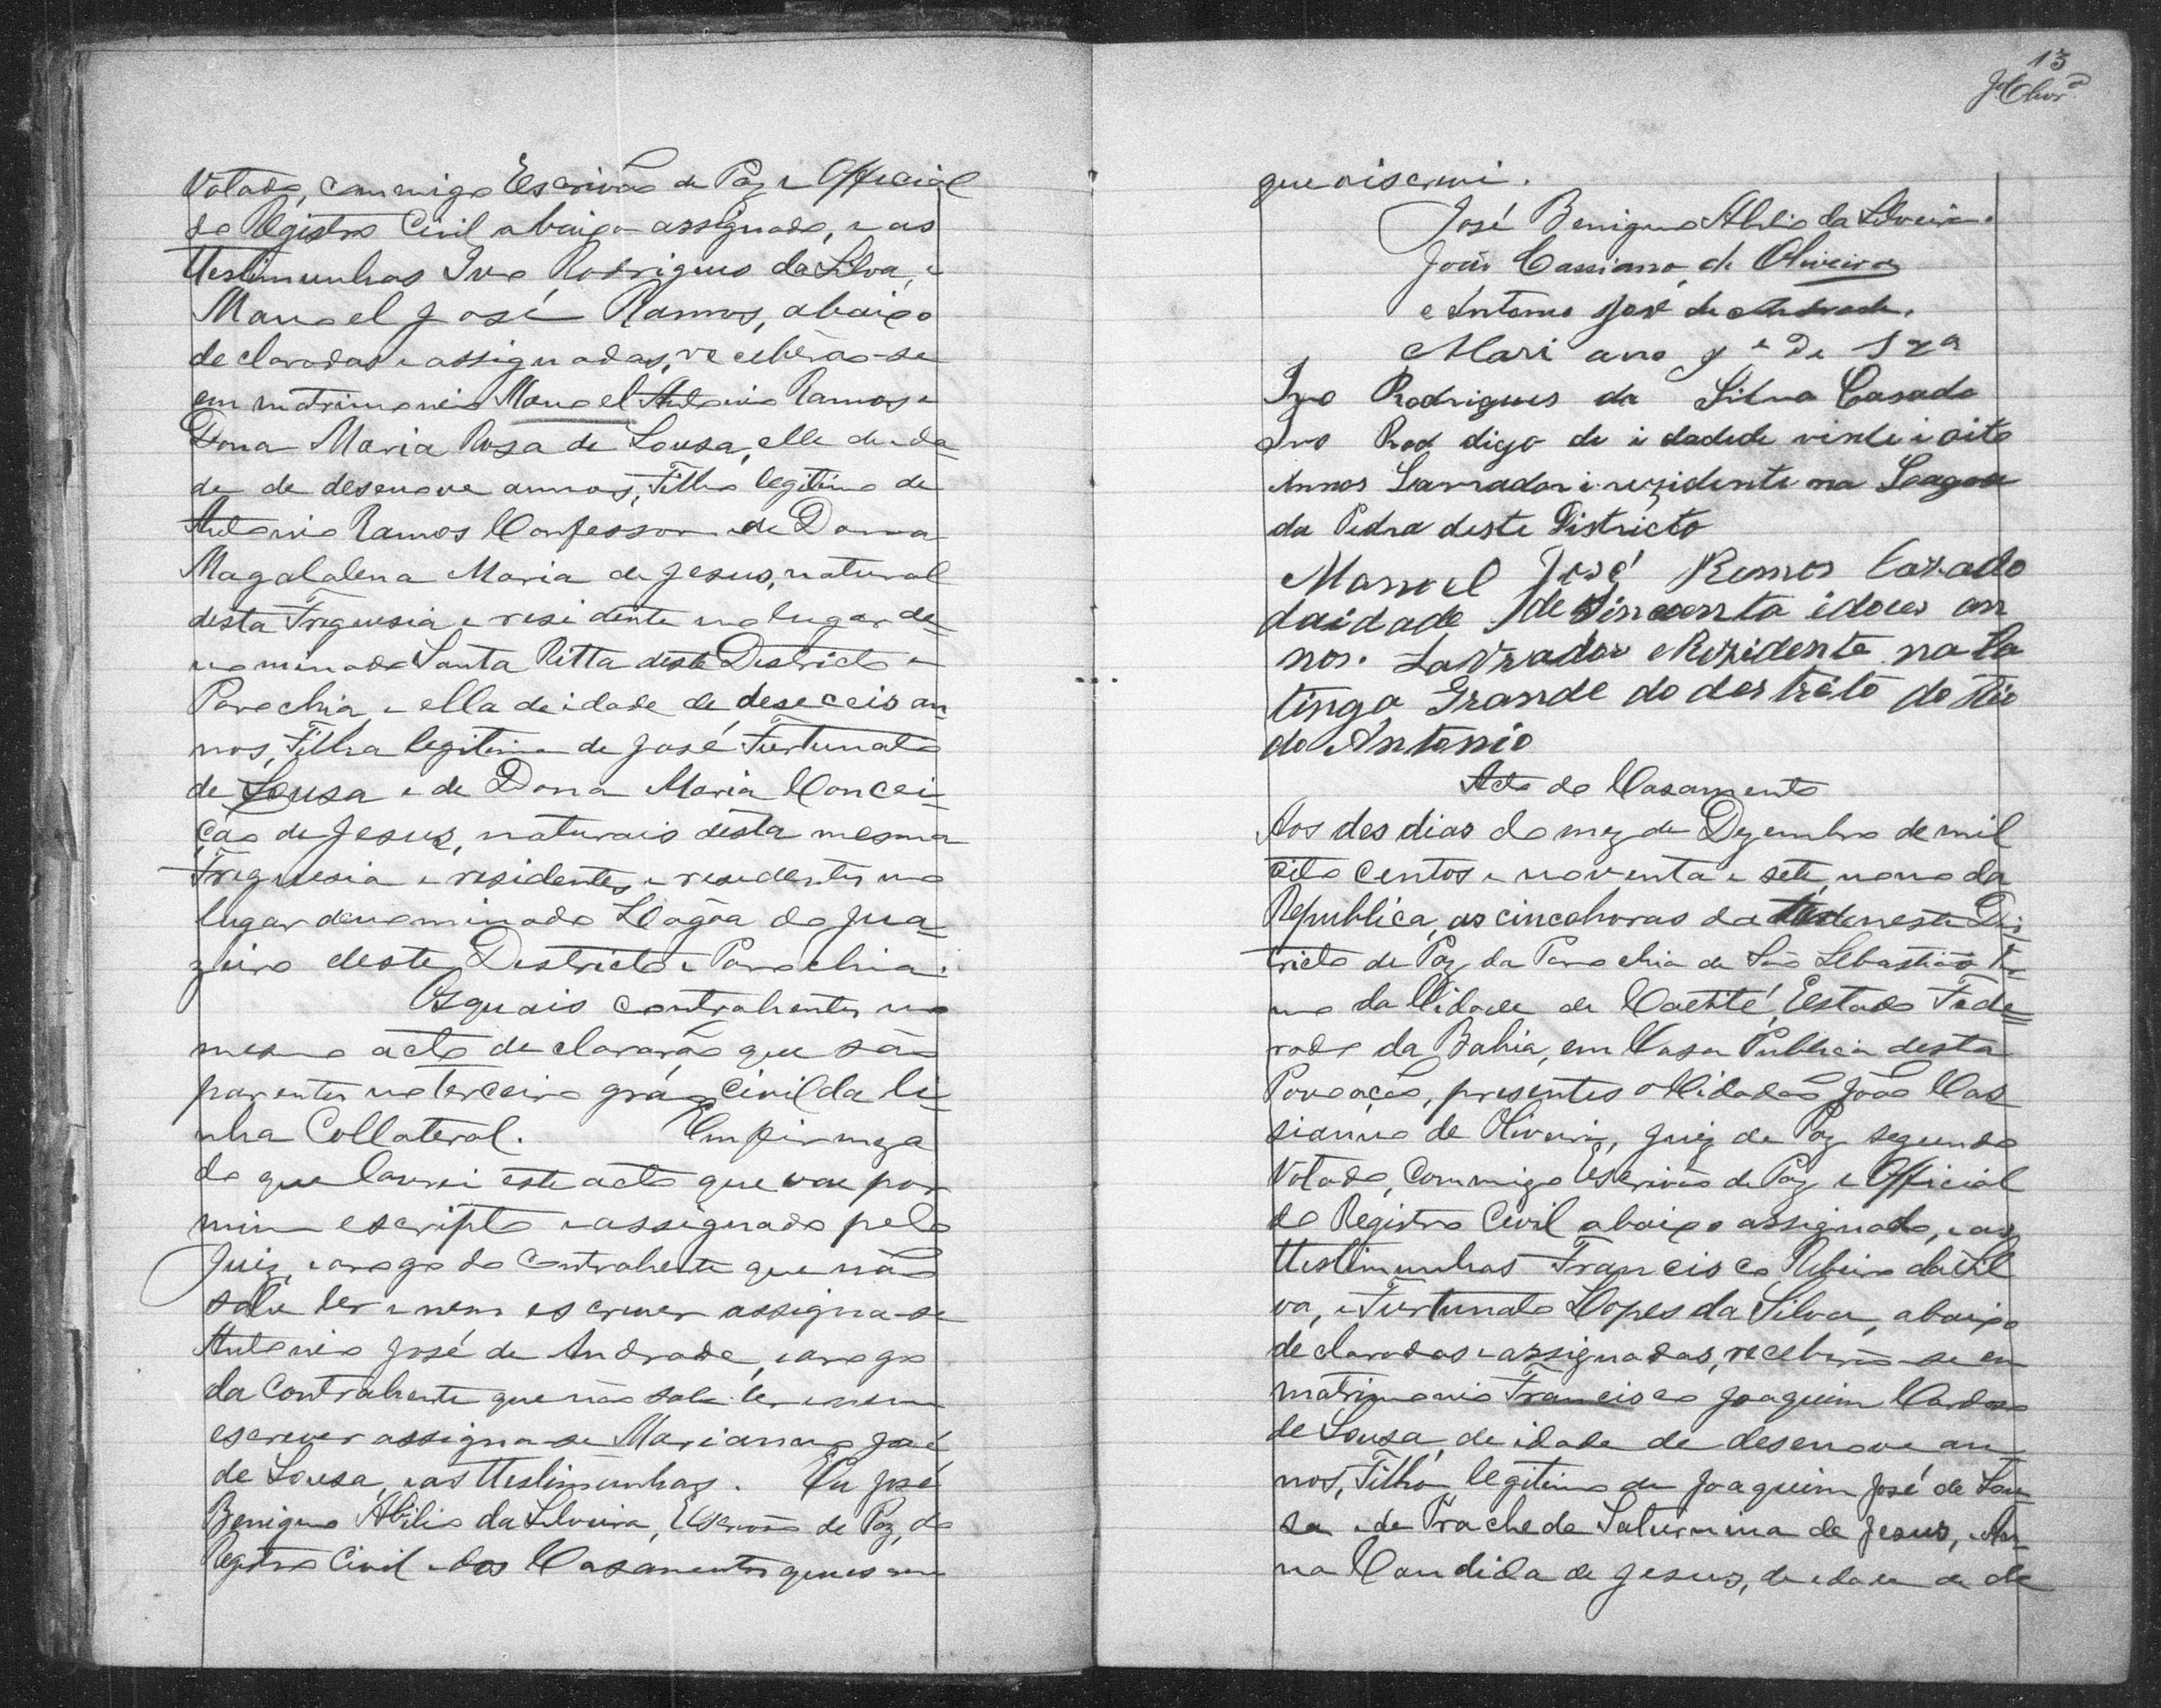 Votado, commigo Escrivão de Paz e Official
do Registro Civil abaixo assignado, e as
ttestimunhas Ivo Rodrigues da Silva, e
Manoel José Ramos, abaixo
declaradas e assignadas, receberão-se
em matrimonio Manoel Antonio Ramos e
Dona Maria Rosa de Sousa, elle de ida=
de de desenove annos, Filho legitimo de
Antonio Ramos Confessor e de Dona
Magalalena Maria de Jesus, natural
desta Freguesia e residente no lugar de=
nominado Santa Ritta deste Districto e
Parochia, e ella de idade de deseceis an
nos, Filha legitima de José Furtunato
de Sousa e de Dona Maria Concei=
ção de Jesus, naturais desta mesma
Freguesia e residentes e residentes no
lugar denominado Lagôa do Jua=
zeiro deste Districto e Parochia.
Os quais contrahentes no
mesmo acto declararão que são
parentes no terceiro gráo Civil da li=
nha Collateral. Em firmeza
do que lavrei este acto que vae por
mim escripto e assignado pelo
Juiz, e arogo do Contrahente que não
sabe ler e nem escrever assigna-se
Antonio José de Andrade, e arogo
da Contrahente que não sabe ler e nem
escrever assigna-se Marianno José
de Sousa, e as ttestimunhas. Eu José
Benigno Abilio da Silveira, Escrivão de Paz, do
Registro Civil e dos Casamentos que escre
13
que oiscrevi.
José Benigno Abilio da Silveira.
João Cassiano de Oliveira
Antonio José de Andrade.
Mari ano je de Sza
Ivo Rodrigues da Silva Casado
Ivo Rod digo de idadede vinte i oito
Annos Lavrador i rezidente na Lagoa
da Pedra deste Districto
Manoel José Ramos Cazado
daidade de Sincoenta idous an
nos. Lavrador eRezidente na Ca
tinga Grande do destrêto do Rio
do Antonio
Acto do Casamento
Aos des dias do mez de Dezembro de mil
oito centos e noventa e sete, nono da
Republica, as cinco horas da tarde nesta Dis=
tricto de Paz da Parochia de São Sebastião Ter
mo da Cidade de Caetité, Estado Fede=
rado da Bahia, em Casa Publica desta
Povoação, presentes o Cidadão João Cas
sianno de Oliveira, Juiz de Paz segundo
Votado, Commigo Escrivão de Paz e Official
do Registro Civil abaixo assignado, e as
ttestimunhas Francisco Ribeiro da Sil
va, e Furtunato Lopes da Silva, abaixo
declaradas e assignadas, receberão-se em
matrimonio Francisco Joaquim Cardoso
de Sousa, de idade de desenove an
nos, Filho legitimo de Joaquim José de Sou
sa e de Prachede Saturnina de Jesus, e An=
na Candida de Jesus, de idade de de